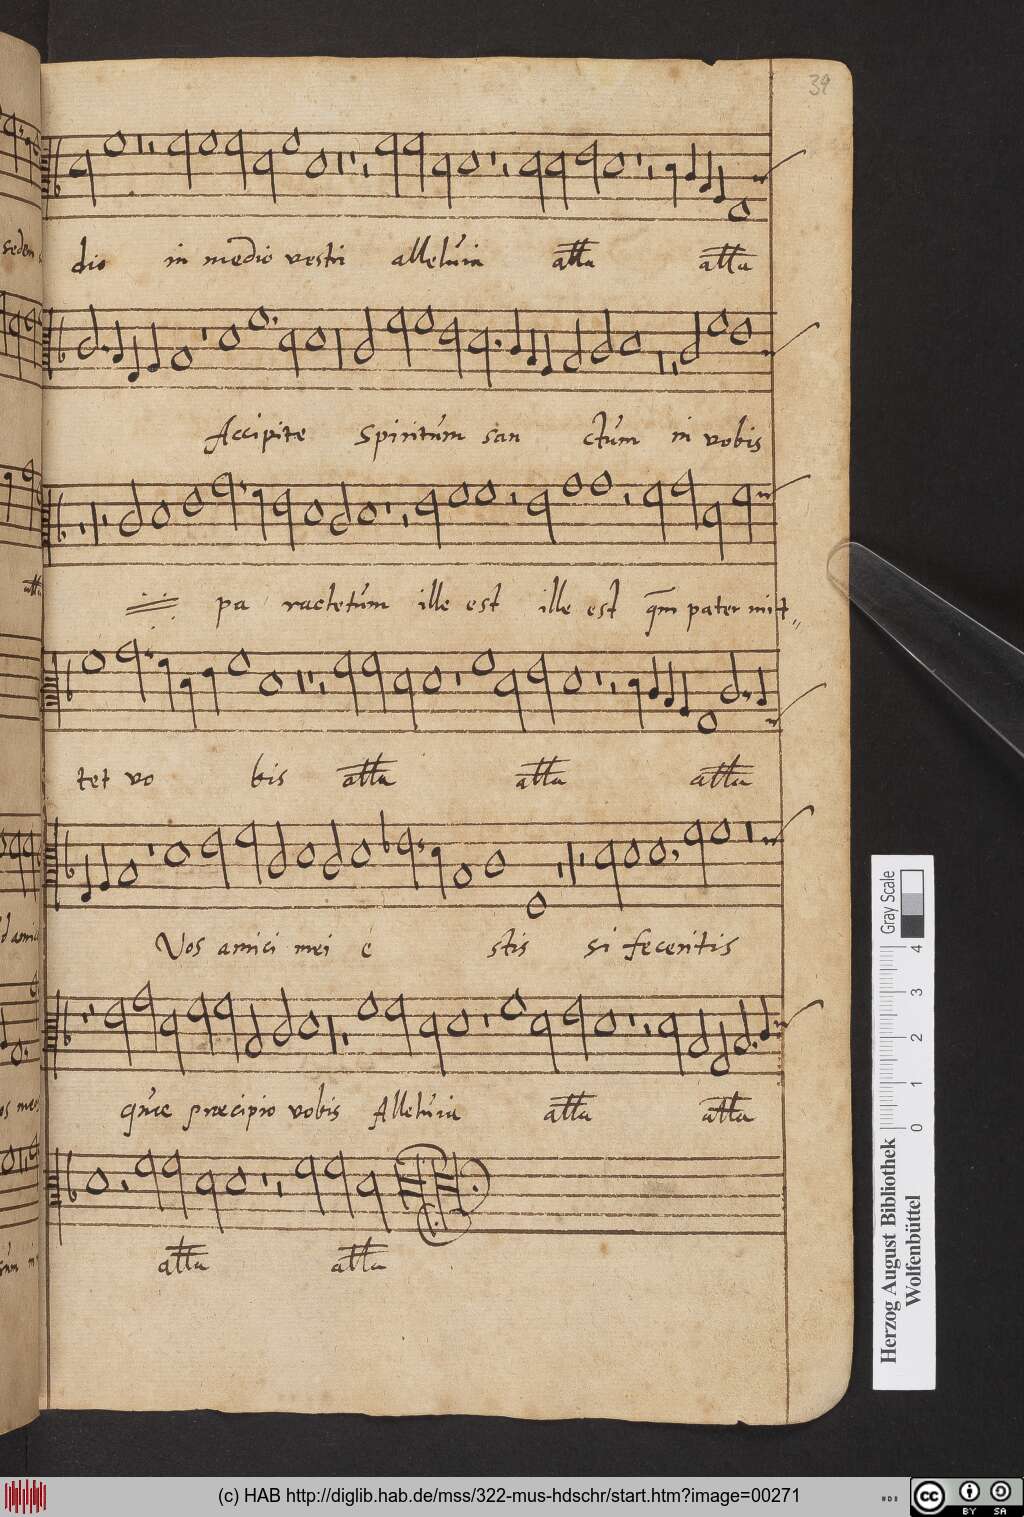 39
dio in medio vestri alleluia alla alla
Accipite Spiritum san ctum in vobis
pa racletum ille est ille est qm pater mit„
tet vo bis alla alla alla
Vos amici mei e stis si feceritis
quæ præcipio vobis Alleluia alla alla
alla alla
sedem
alla
Gray Scale
0 1 2 3 4
Herzog August Bibliothek
Wolfenbüttel
(c) HAB http://diglib.hab.de/mss/322-mus-hdschr/start.htm?image=00271
cc BY SA